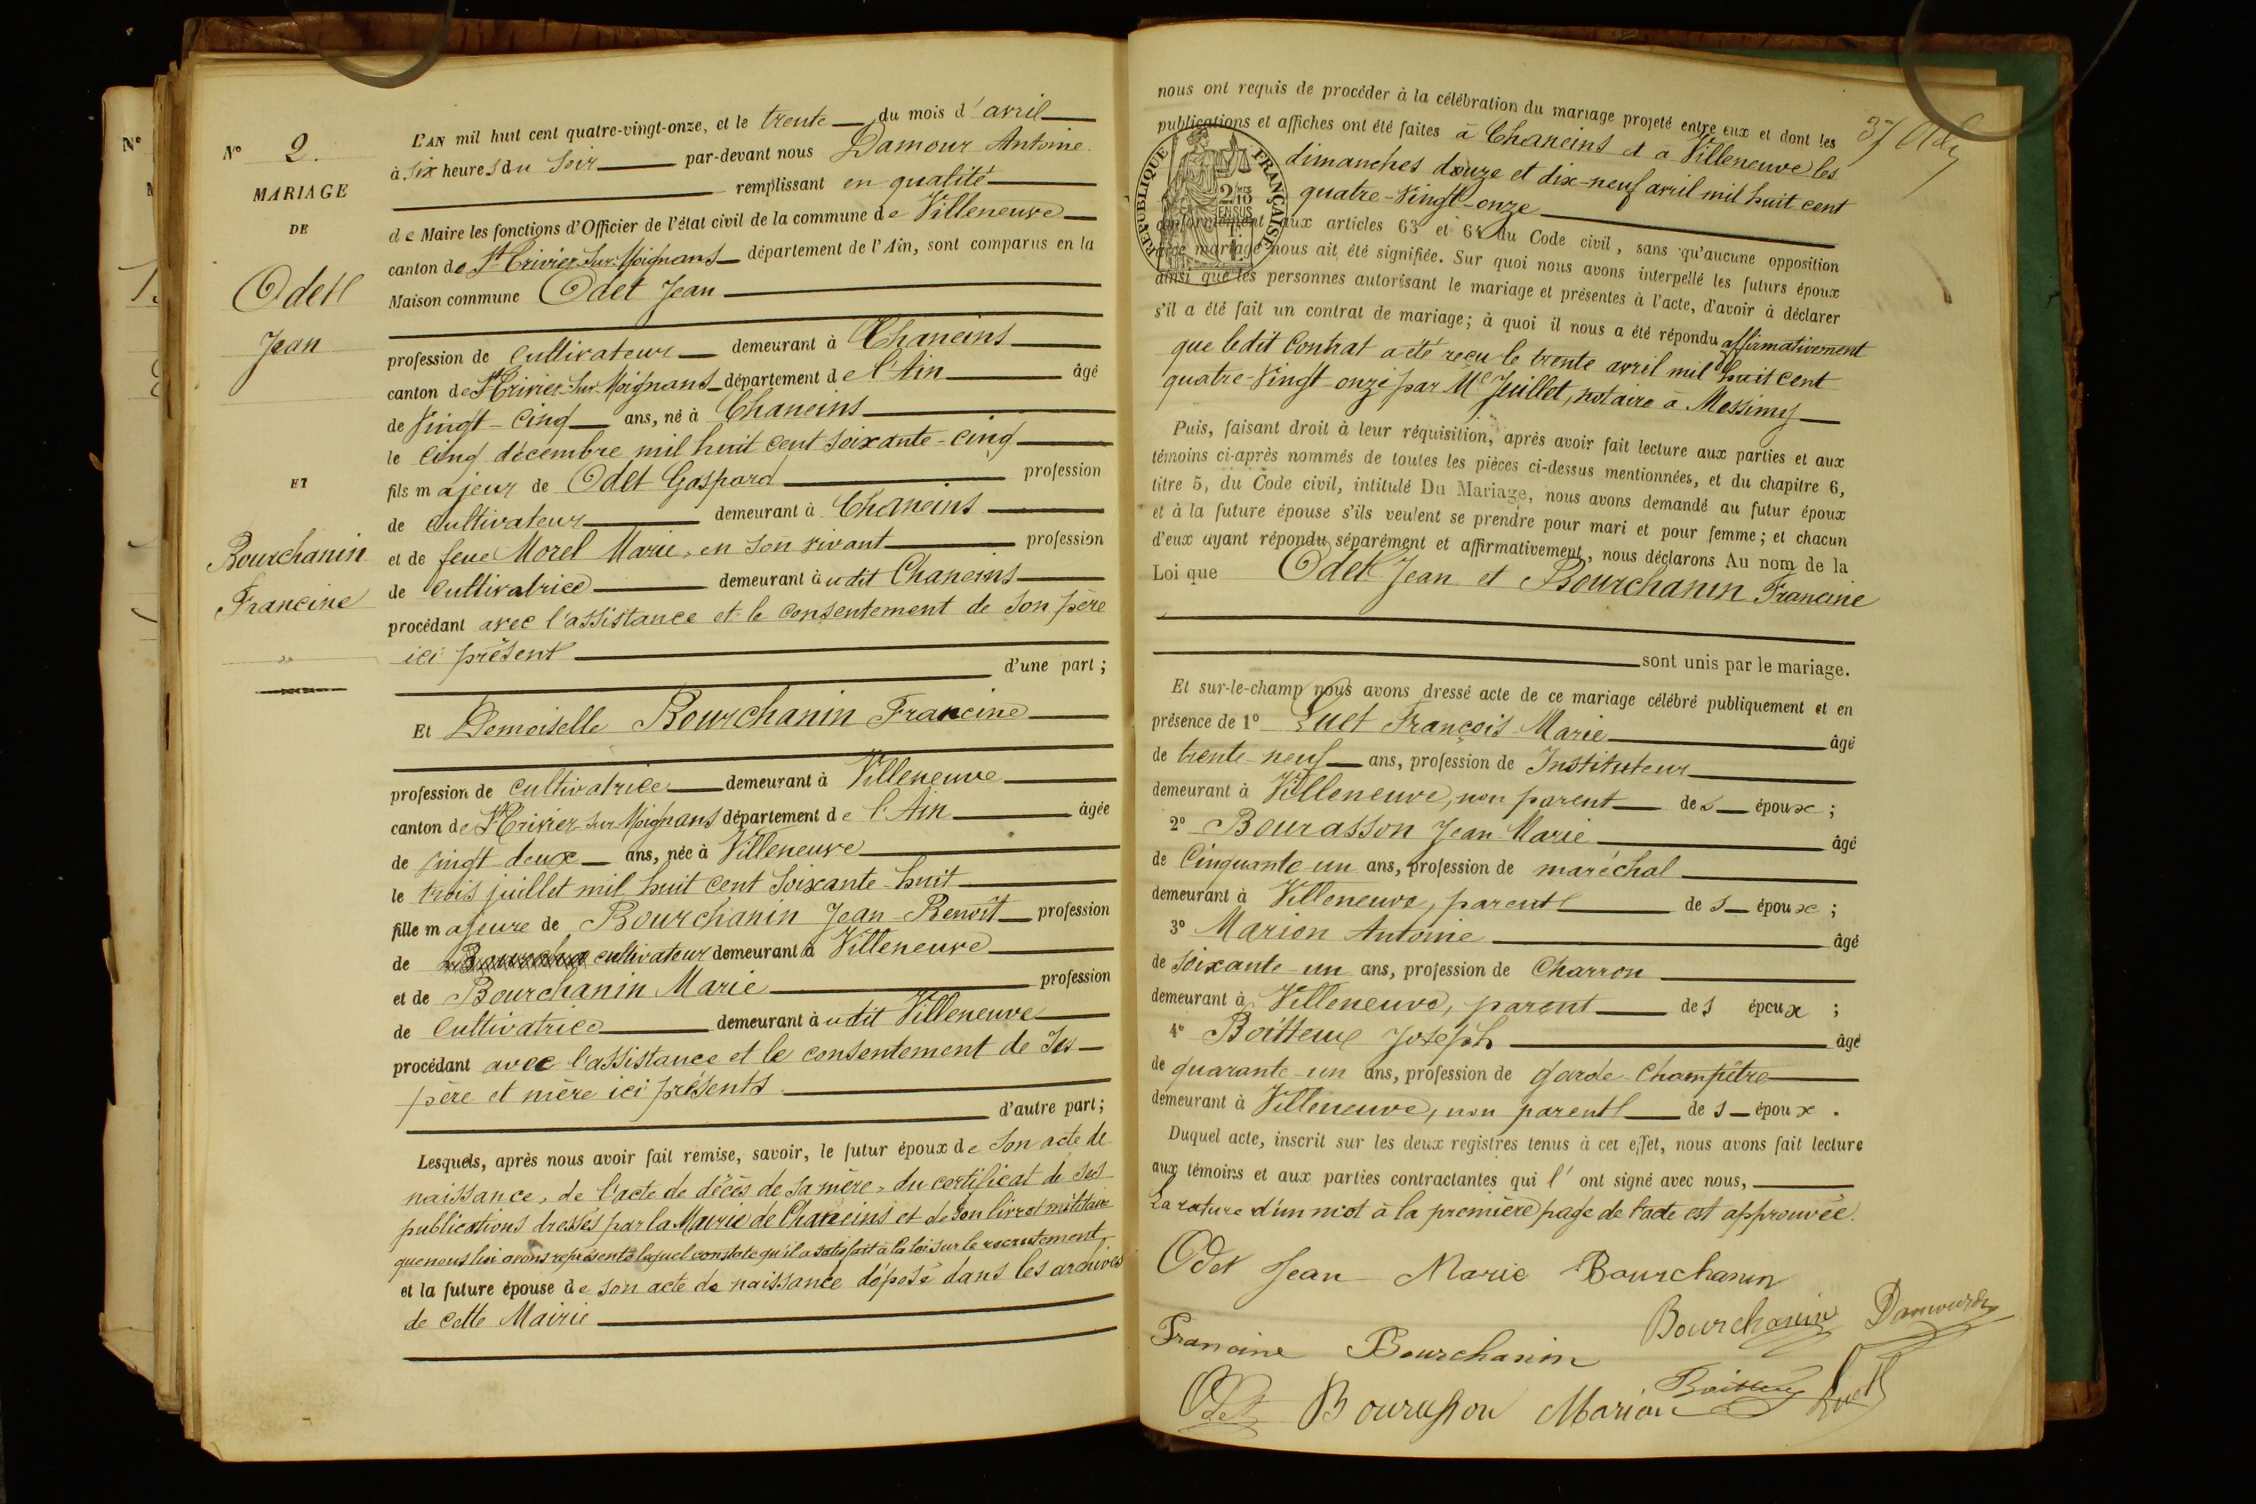 N° 2.
MARIAGE
DE
Odet
Jean
ET
Bourchanin
Francine
L'AN mil huit cent quatre-vingt-onze, et le trente du mois d'avril
à six heures du soir par-devant nous Damour Antoine
remplissant en qualité
de Maire les fonctions d'Officier de l'état civil de la commune de Villeneuve
canton de St Trivier-sur-Moignans département de l'Ain, sont comparus en la
Maison commune Odet Jean
profession de cultivateur demeurant à Chaneins
canton de St Trivier-sur-Moignans département de l'Ain âgé
de vingt-cinq ans, né à Chaneins
le cinq décembre mil huit cent soixante-cinq
fils majeur de Odet Gaspard profession
de cultivateur demeurant à Chaneins
et de feue Morel Marie, en son vivant profession
de cultivatrice demeurant à udit Chaneins
procédant avec l'assistance et le consentement de son père
ici présent
d'une part ;
Et Demoiselle Bourchanin Francine
profession de cultivatrice demeurant à Villeneuve
canton de St Trivier-sur-Moignans département de l'Ain âgée
de vingt deux ans, née à Villeneuve
le trois juillet mil huit cent soixante-huit
fille majeure de Bourchanin Jean-Benoît profession
de cultivateur demeurant à Villeneuve
et de Bourchanin Marie profession
de cultivatrice demeurant à udit Villeneuve
procédant avec l'assistance et le consentement de ses
père et mère ici présents
d'autre part ;
Lesquels, après nous avoir fait remise, savoir, le futur époux de son acte de
naissance, de l'acte de décès de sa mère, du certificat de ses
publications dressés par la Mairie de Chaneins et de son livret militaire
que nous lui avons représenté lequel constate qu'il a satisfait à la loi sur le recrutement
et la future épouse de son acte de naissance déposé dans les archives
de cette Mairie
nous ont requis de procéder à la célébration du mariage projeté entre eux et dont les
publications et affiches ont été faites à Chaneins et à Villeneuve les
dimanches douze et dix-neuf avril mil huit cent
quatre-vingt-onze
RÉPUBLIQUE FRANÇAISE
2/10 EN SUS
conformément aux articles 63 et 64 du Code civil, sans qu'aucune opposition
audit mariage nous ait été signifiée. Sur quoi nous avons interpellé les futurs époux
ainsi que les personnes autorisant le mariage et présentes à l'acte, d'avoir à déclarer
s'il a été fait un contrat de mariage ; à quoi il nous a été répondu affirmativement
que ledit Contrat a été reçu le trente avril mil huit cent
quatre-vingt onze par Me Juillet, notaire à Messimy
Puis, faisant droit à leur réquisition, après avoir fait lecture aux parties et aux
témoins ci-après nommés de toutes les pièces ci-dessus mentionnées, et du chapitre 6,
titre 5, du Code civil, intitulé Du Mariage, nous avons demandé au futur époux
et à la future épouse s'ils veulent se prendre pour mari et pour femme ; et chacun
d'eux ayant répondu séparément et affirmativement, nous déclarons Au nom de la
Loi que Odet Jean et Bourchanin Francine
sont unis par le mariage.
Et sur-le-champ nous avons dressé acte de ce mariage célébré publiquement et en
présence de 1° Luet François Marie âgé
de trente-neuf ans, profession de Instituteur
demeurant à Villeneuve, non parent des époux ;
2° Bourasson Jean-Marie âgé
de Cinquante un ans, profession de maréchal
demeurant à Villeneuve, parent des époux ;
3° Marion Antoine âgé
de soixante-un ans, profession de Charron
demeurant à Villeneuve, parent des époux ;
4° Boitteux Joseph âgé
de quarante-un ans, profession de garde-Champêtre
demeurant à Villeneuve, non parent des époux.
Duquel acte, inscrit sur les deux registres tenus à cet effet, nous avons fait lecture
aux témoins et aux parties contractantes qui l'ont signé avec nous,
La rature d'un mot à la première page de l'acte est approuvée.
Odet Jean Marie Bourchanin
Bourchanin Damour
Francine Bourchanin
Odet Bourasson Marion Boitteux Luet